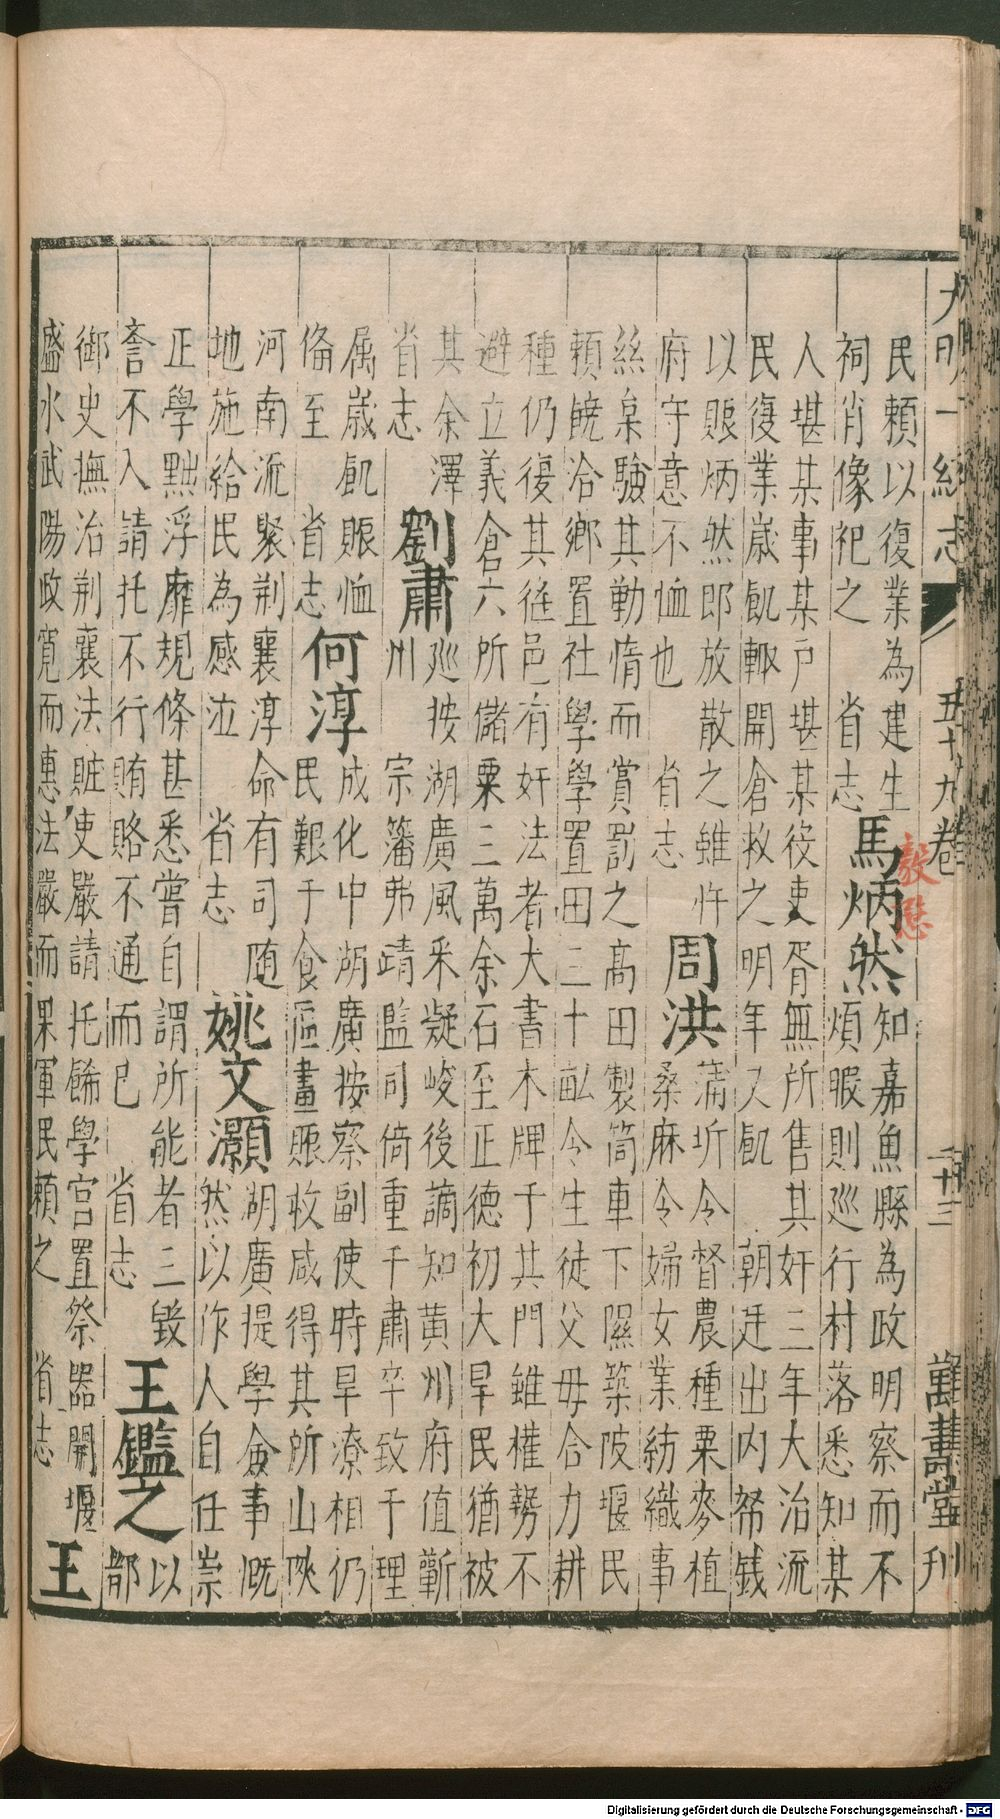 大明一統志 五十九卷 二十三 萬壽堂刊
民賴以復業為建生
祠肖像祀之 省志
馬炳然
知嘉魚縣為政明察而不
煩暇則巡行村落悉知某
人堪某事某戶堪某役吏胥無所售其奸三年大治流
民復業歲飢輙開倉救之明年又飢 朝廷出內帑錢
以賑炳然即放散之雖忤
府守意不恤也 省志
周洪
蒲圻令督農種粟麥植
桑麻令婦女業紡織事
絲枲驗其勤惰而賞罰之高田製筒車下隰築陂堰民
賴饒洽鄉置社學學置田三十畝令生徒父母合力耕
種仍復其徭邑有奸法者大書木牌于其門雖權勢不
避立義倉六所儲粟三萬余石至正德初大旱民猶被
其余澤
省志
劉肅
巡按湖廣風采凝峻後謫知黃州府值蘄
州 宗藩弗靖監司倚重千肅卒致于理
属歲飢賑恤
俻至 省志
何淳
成化中湖廣按察副使時旱潦相仍
民艱于食區畫賑收咸得其所山陜
河南流聚荆襄淳命有司随
地施給民為感泣 省志
姚文灝
湖廣提學僉事慨
然以作人自任崇
正學黜浮靡規條甚悉嘗自謂所能者三毀
訾不入請托不行賄賂不通而已 省志
王鑑之
以
都
御史撫治荆襄法賍吏嚴請托餙學宮置祭器開堰
盛水武陽政寬而惠法嚴而果軍民頼之 省志
王
毅愍
Digitalisierung gefördert durch die Deutsche Forschungsgemeinschaft - DFG